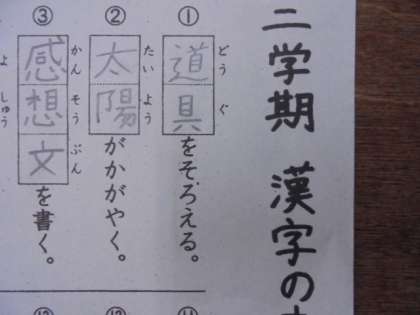 二学期 漢字の
① 道具をそろえる。
どうぐ
② 太陽がかがやく。
たいよう
③ 感想文を書く。
かんそうぶん